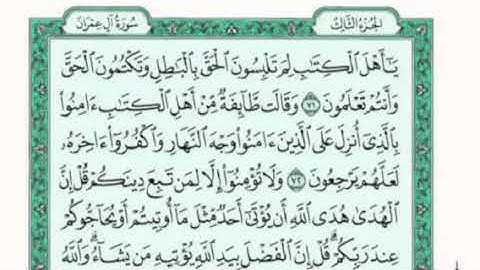 سُورَةُ آلِ عِمْرَانَ
الجُزْءُ الثَّالِثُ
يَٰٓأَهْلَ ٱلْكِتَٰبِ لِمَ تَلْبِسُونَ ٱلْحَقَّ بِٱلْبَٰطِلِ وَتَكْتُمُونَ ٱلْحَقَّ
وَأَنتُمْ تَعْلَمُونَ ٧١ وَقَالَت طَّآئِفَةٌ مِّنْ أَهْلِ ٱلْكِتَٰبِ ءَامِنُوا۟
بِٱلَّذِىٓ أُنزِلَ عَلَى ٱلَّذِينَ ءَامَنُوا۟ وَجْهَ ٱلنَّهَارِ وَٱكْفُرُوٓا۟ ءَاخِرَهُۥ
لَعَلَّهُمْ يَرْجِعُونَ ٧٢ وَلَا تُؤْمِنُوٓا۟ إِلَّا لِمَن تَبِعَ دِينَكُمْ قُلْ إِنَّ
ٱلْهُدَىٰ هُدَى ٱللَّهِ أَن يُؤْتَىٰٓ أَحَدٌ مِّثْلَ مَآ أُوتِيتُمْ أَوْ يُحَآجُّوكُمْ
عِندَ رَبِّكُمْ ۗ قُلْ إِنَّ ٱلْفَضْلَ بِيَدِ ٱللَّهِ يُؤْتِيهِ مَن يَشَآءُ ۗ وَٱللَّهُ